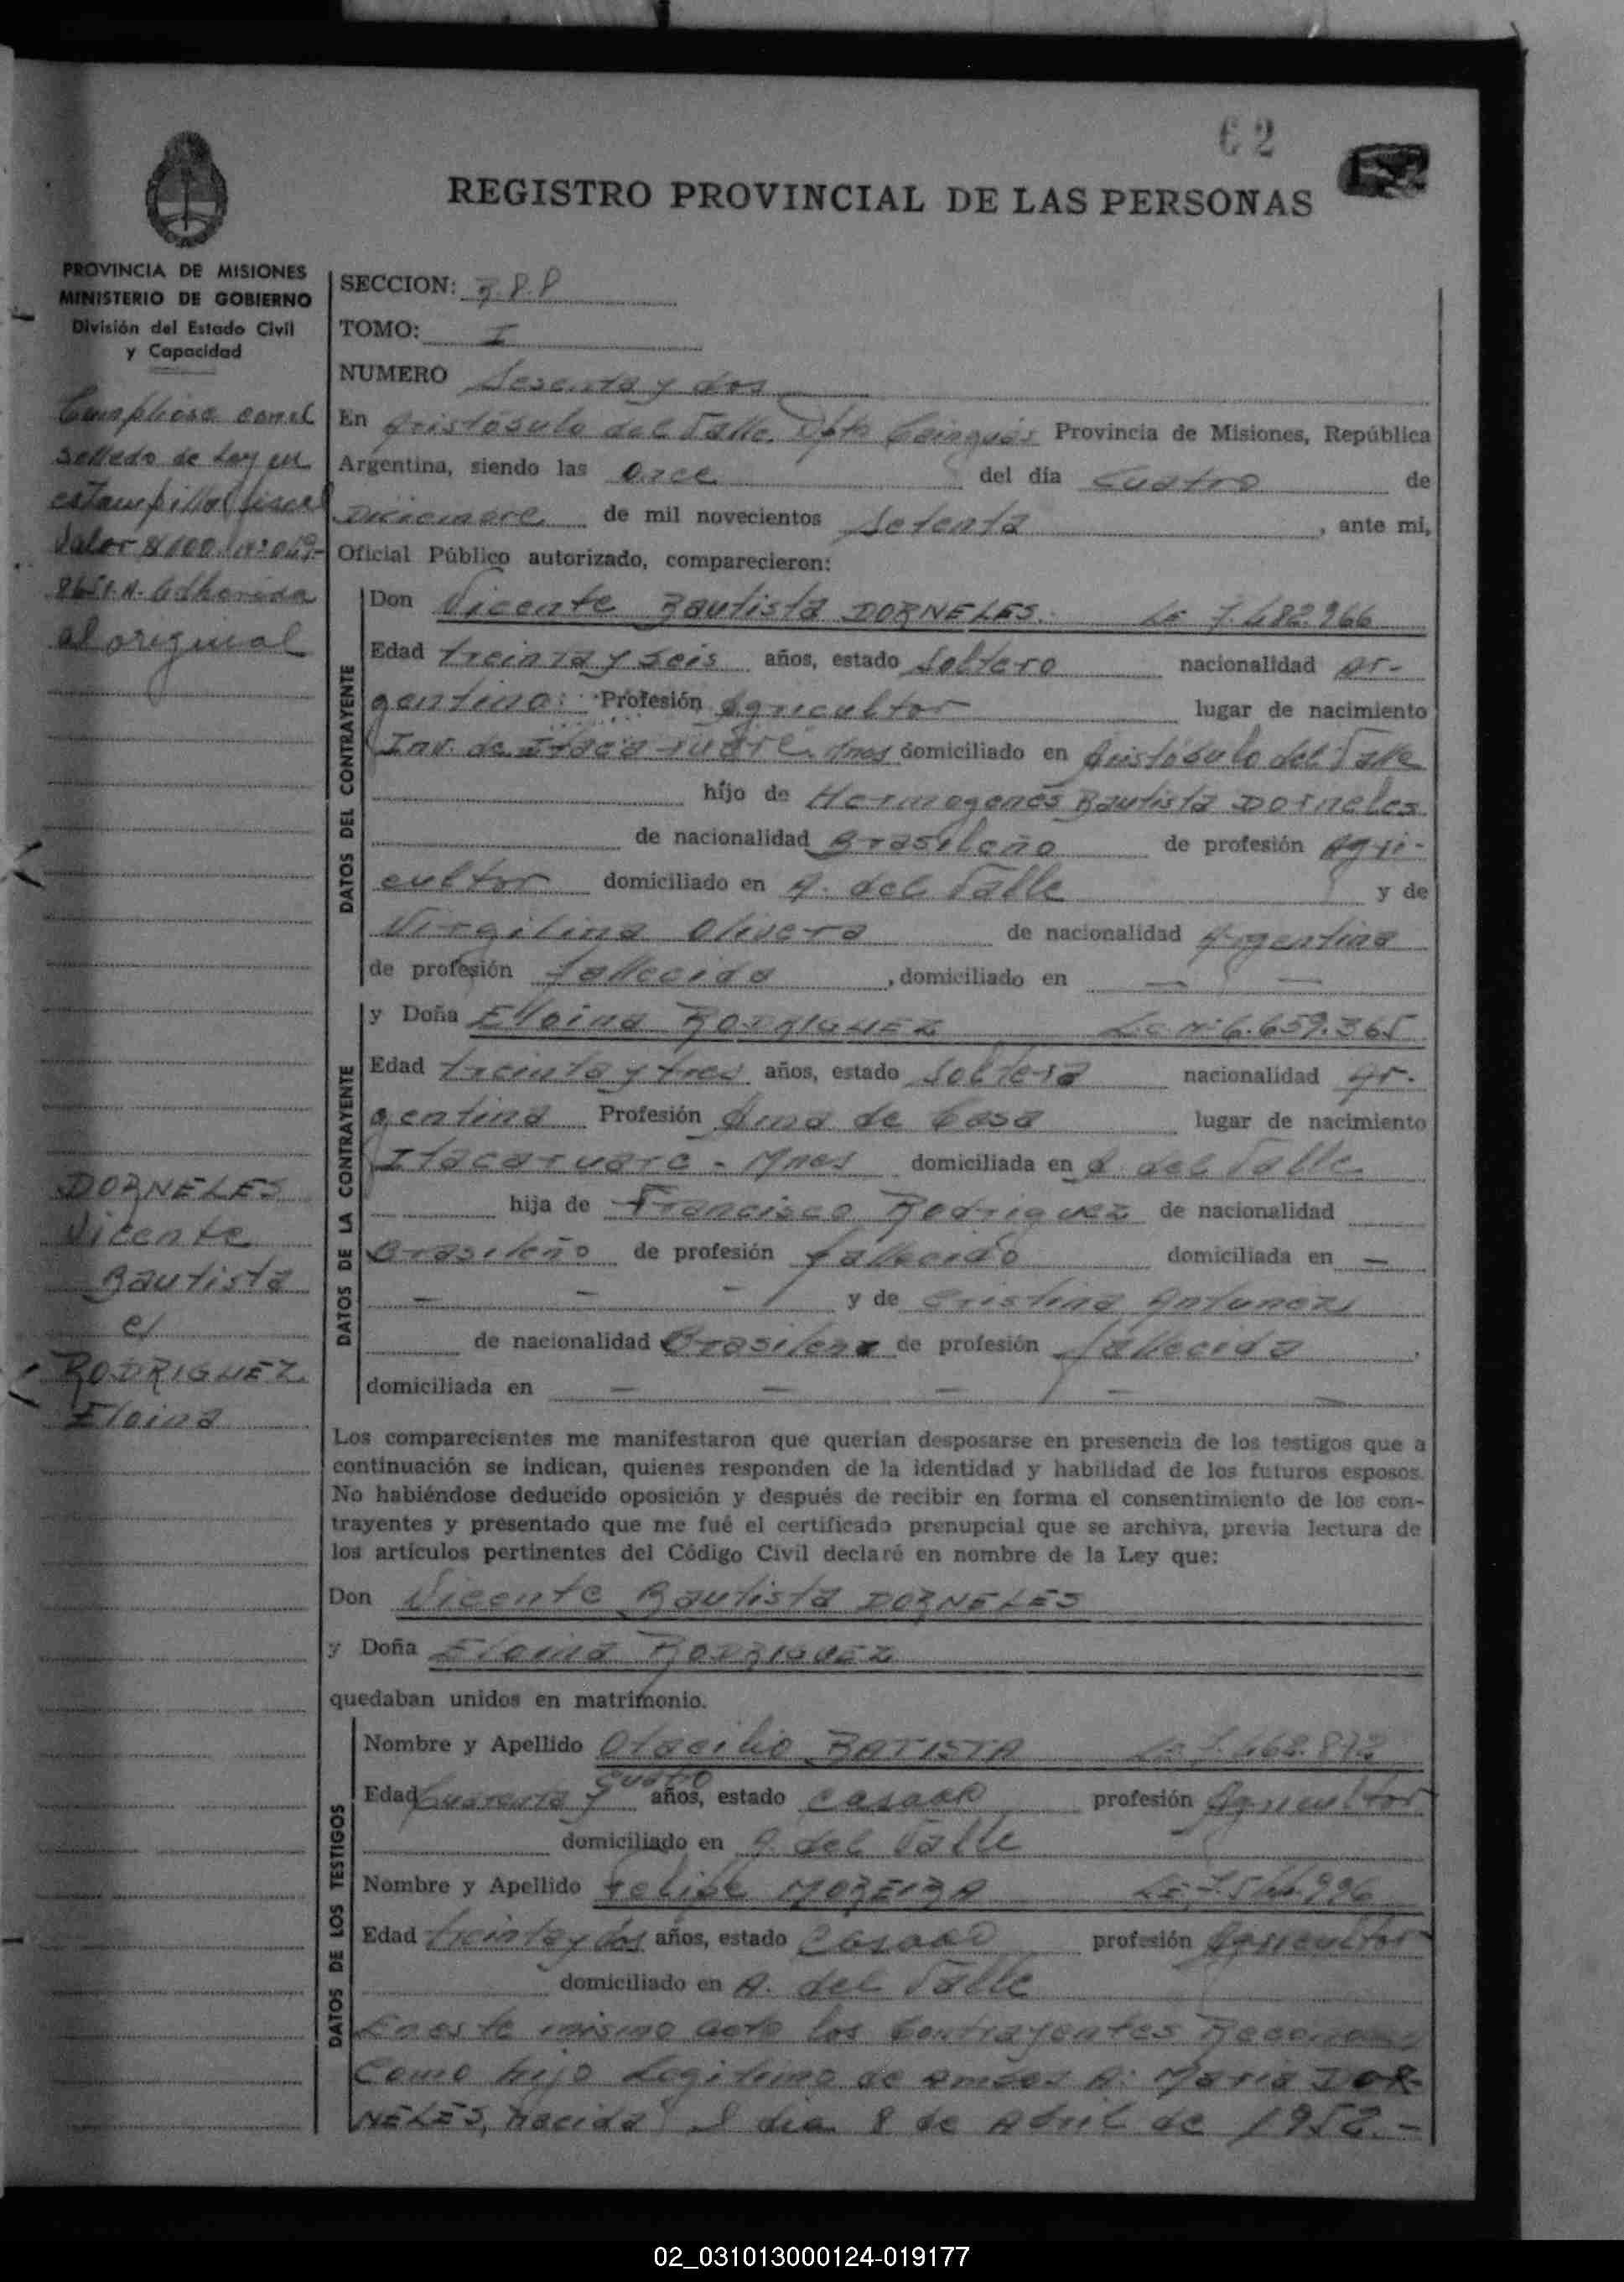 62
REGISTRO PROVINCIAL DE LAS PERSONAS
PROVINCIA DE MISIONES
MINISTERIO DE GOBIERNO
División del Estado Civil
y Capacidad
Cumpliose con el
sellado de Ley en
estampilla fiscal
Valor $ 100
Adherida
al original
DORNELES
Vicente
Bautista
c/
RODRIGUEZ
Eloina
SECCION:
TOMO: I
NUMERO Sesenta y dos
En Aristóbulo del Valle, Dpto Cainguás Provincia de Misiones, República
Argentina, siendo las Once del día Cuatro de
Diciembre de mil novecientos Setenta, ante mi,
Oficial Público autorizado, comparecieron:
DATOS DEL CONTRAYENTE
Don Vicente Bautista DORNELES. LE 7.482.966
Edad treinta y seis años, estado Soltero nacionalidad Ar-
gentino: Profesión Agricultor lugar de nacimiento
Itacaruaré Mnes domiciliado en Aristóbulo del Valle
hijo de Hermogenes Bautista Dorneles
de nacionalidad Brasileño de profesión Agri-
cultor domiciliado en A. del Valle y de
Virgilina Olivera de nacionalidad Argentina
de profesión fallecida, domiciliado en — —
DATOS DE LA CONTRAYENTE
y Doña Eloina RODRIGUEZ LC Nº 6.659.365
Edad treinta y tres años, estado Soltera nacionalidad Ar-
gentina Profesión Ama de Casa lugar de nacimiento
Itacaruare - Mnes domiciliada en A. del Valle
hija de Francisco Rodriguez de nacionalidad
Brasileño de profesión fallecido domiciliada en —
— — — y de Cristina Antunez
de nacionalidad Brasilera de profesión fallecida,
domiciliada en — — — — —
Los comparecientes me manifestaron que querían desposarse en presencia de los testigos que a
continuación se indican, quienes responden de la identidad y habilidad de los futuros esposos.
No habiéndose deducido oposición y después de recibir en forma el consentimiento de los con-
trayentes y presentado que me fué el certificado prenupcial que se archiva, previa lectura de
los artículos pertinentes del Código Civil declaré en nombre de la Ley que:
Don Vicente Bautista DORNELES
y Doña Eloina RODRIGUEZ
quedaban unidos en matrimonio.
DATOS DE LOS TESTIGOS
Nombre y Apellido Otacilio BATISTA
Edad Cuarenta y cuatro años, estado casado profesión Agricultor
domiciliado en A. del Valle
Nombre y Apellido Felipe MOREIRA
Edad treinta y dos años, estado Casado profesión Agricultor
domiciliado en A. del Valle
En este mismo acto los Contrayentes Reconocen
Como hijo Legitimo de ambos A: Maria DOR-
NELES, nacida el dia 8 de Abril de 1952.-
02_031013000124-019177